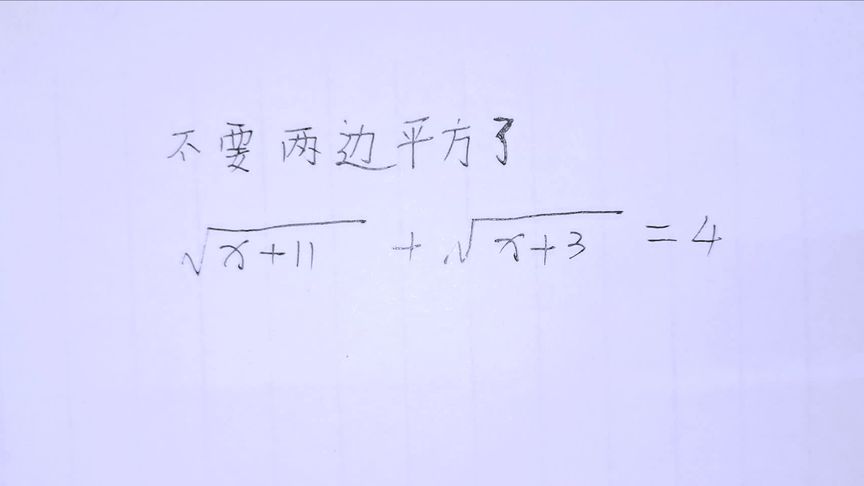 不要两边平方了
√(x+11) + √(x+3) = 4